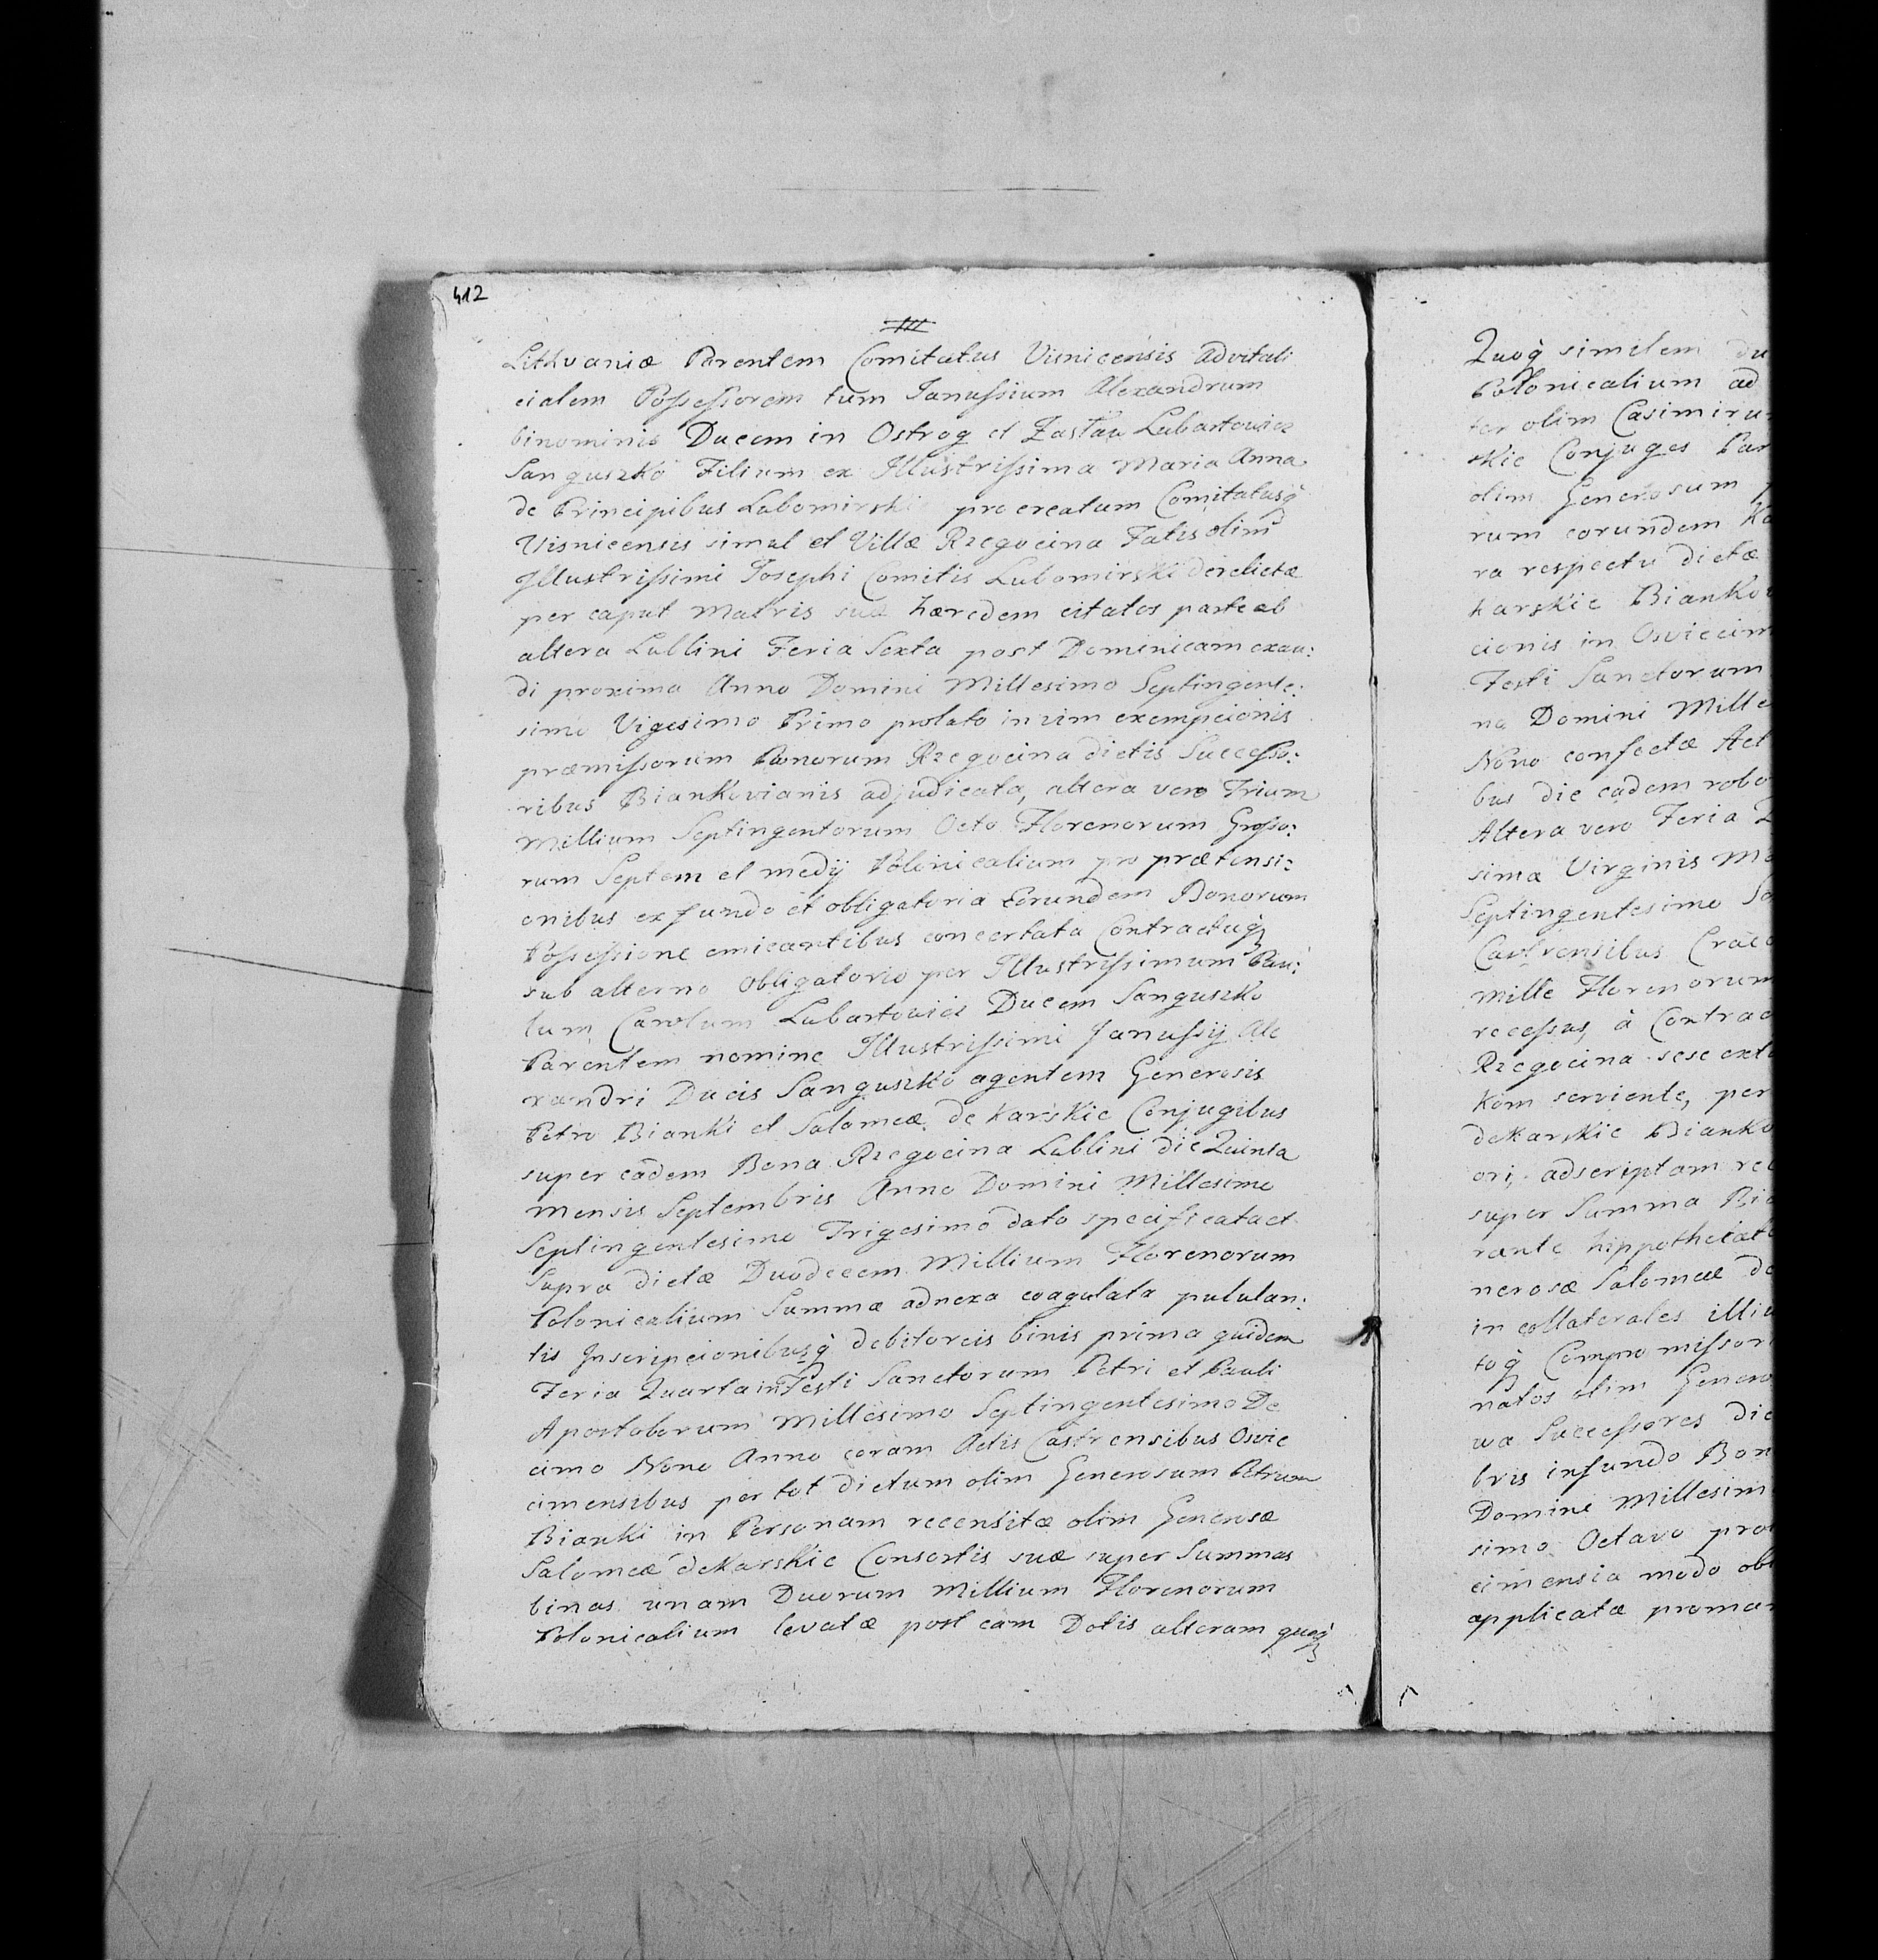 412
Lithvaniæ Parentem Comitatus Visnicensis advitali
cialem Possessorem tum Janussium Alexandrum
binominis Ducem in Ostrog et Zaslau Lubartowicz
Sanguszko Filium ex Illustrissima Maria Anna
de Principibus Lubomirskie procreatum Comitatusq̀
Visnicensis simul et Villæ Rzegocina Fatis olim
Illustrissimi Josephi Comitis Lubomirski derelictæ
per caput Matris suæ hæredem citatos parte ab
altera Lublini Feria Sexta post Dominicam exau:
di proxima Anno Domini Millesimo Septingente:
simo Vigesimo Primo prolato in vim exempcionis
præmissorum Bonorum Rzegocina dictis Successo:
ribus Biankovianis adjudicata, altera vero Trium
Millium Septingentorum Octo Florenorum Grosso:
rum Septem et medij Polonicalium pro prætensi:
onibus ex fundo et obligatoria Eorundem Bonorum
Possessione emicantibus concertata Contractuq̀
sub alterno obligatorio per Illustrissimum Pau:
lum Carolum Lubartowicz Ducem Sanguszko
Parentem nomine Illustrissimi Janussij Ale
xandri Ducis Sanguszko agentem Generosis
Petro Bianki et Salomeæ de Karskie Conjugibus
super eadem Bona Rzegocina Lublini die Quinta
Mensis Septembris Anno Domini Millesimo
Septingentesimo Trigesimo dato specificata et
Supra dictæ Duodecem Millium Florenorum
Polonicalium Summæ adnexa coagulata pululan:
tis Inscripcionibusq̀ debitoreis binis prima quidem
Feria Quarta in Festi Sanctorum Petri et Pauli
Apostolorum Millesimo Septingentesimo De
cimo Nono Anno coram Actis Castrensibus Osvie
cimensibus per tot dictum olim Generosum Petrum
Bianki in Personam recensitæ olim Generosæ
Salomeæ de Karskie Consortis suæ super Summas
binas unam Duorum Millium Florenorum
Polonicalium levatæ post eam Dotis alteram quoq̀
Quoq̀ similem du
Polonicalium ad
ter olim Casimiru
skie Conjuges Par
olim Generosum
rum eorundem Ka
ra respectu dictæ
Karskie Bianko
cionis in Osviecim
Festi Sanctorum
no Domini Mille
Nono confectæ Act
bus die eadem robo
Altera vero Feria Q
simæ Virginis Ma
Septingentesimo
Castrensibus Craco
Mille Florenorum
recessus, à Contrac
Rzegocina sese exte
kom serviente, per
de Karskie Bianko
ori, adscriptam re
super Summa Bi
rante hippothecat
nerosæ Salomeæ de
in collaterales illiu
toq̀ Compromissori
natos olim Genero
wa Successores die
bris in fundo Bon
Domini Millesim
simo Octavo pro
cimensia modo obl
applicatæ proma